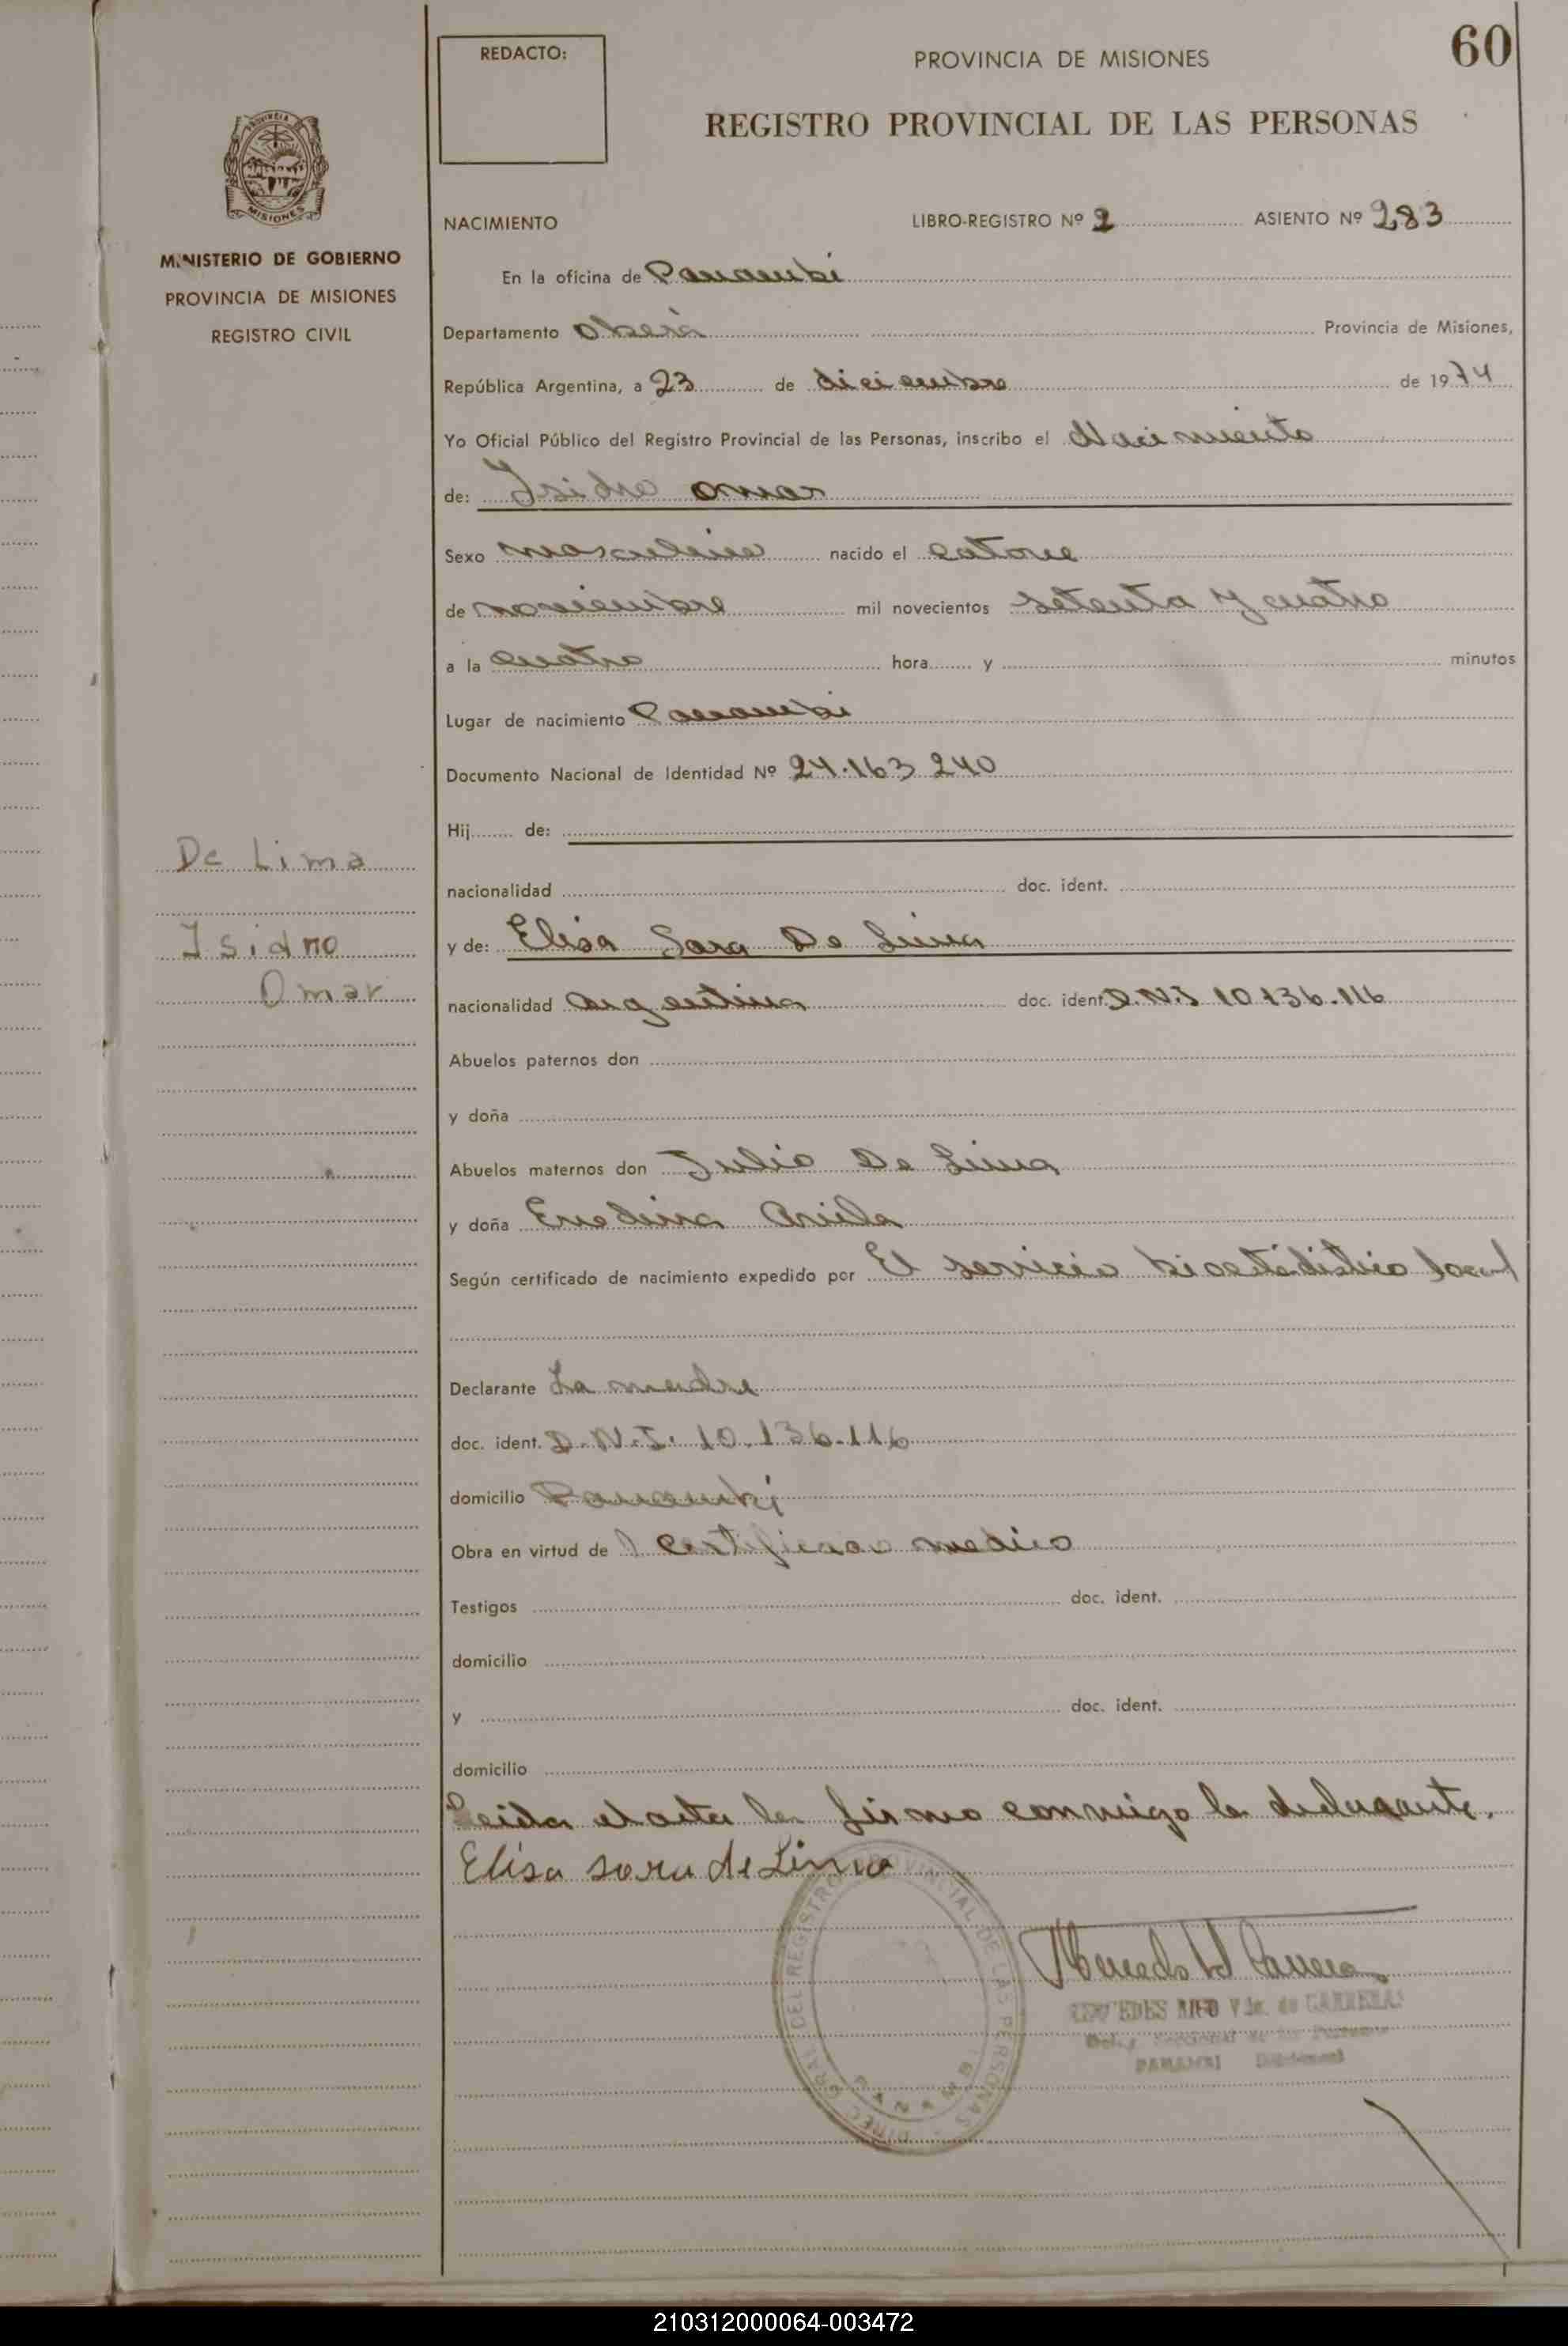 REDACTO:
PROVINCIA DE MISIONES
60
REGISTRO PROVINCIAL DE LAS PERSONAS
PROVINCIA
MISIONES
MINISTERIO DE GOBIERNO
PROVINCIA DE MISIONES
REGISTRO CIVIL
NACIMIENTO LIBRO-REGISTRO Nº 2 ASIENTO Nº 283
En la oficina de Panambi
Departamento Oberá Provincia de Misiones,
República Argentina, a 23 de diciembre de 1974
Yo Oficial Público del Registro Provincial de las Personas, inscribo el Nacimiento
de: Isidro Omar
Sexo masculino nacido el catorce
de noviembre mil novecientos setenta y cuatro
a la cuatro hora y minutos
Lugar de nacimiento Panambi
Documento Nacional de Identidad Nº 24.163 240
Hij de:
De Lima
nacionalidad doc. ident.
Isidro
y de: Elisa Sara De Lima
Omar
nacionalidad argentina doc. ident. D.N.I 10.136.116
Abuelos paternos don
y doña
Abuelos maternos don Julio De Lima
y doña Enedina
Según certificado de nacimiento expedido por El servicio bioestadistico local
Declarante La madre
doc. ident. D.N.I. 10.136.116
domicilio Panambi
Obra en virtud de certificado medico
Testigos doc. ident.
domicilio
y doc. ident.
domicilio
Leida el acta la firma conmigo la declarante.
Elisa sara de Lima
DIREC. GRAL. DEL REGISTRO PROVINCIAL DE LAS PERSONAS
PANAMBI
MERCEDES Vda. de CARRERAS
PANAMBI
210312000064-003472